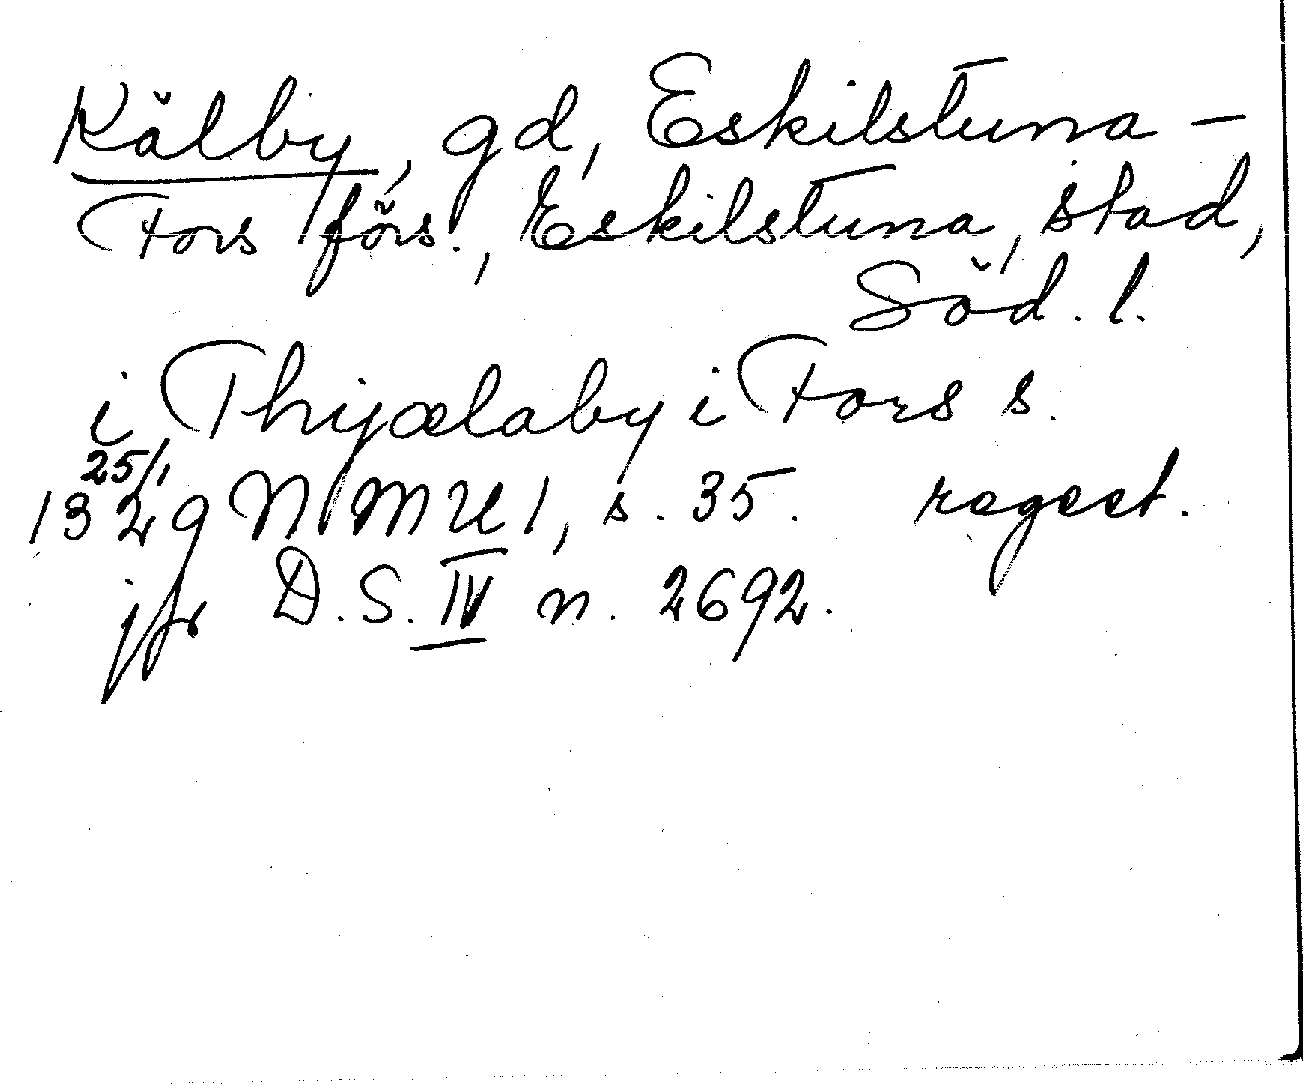 Kälby, gd, Eskilstuna -
Fors förs., Eskilstuna, stad,
Söd. l.
i Thyælaby i Fors s.
25/1
1329 NMU 1, s. 35. regest.
jfr D.S. IV n. 2692.